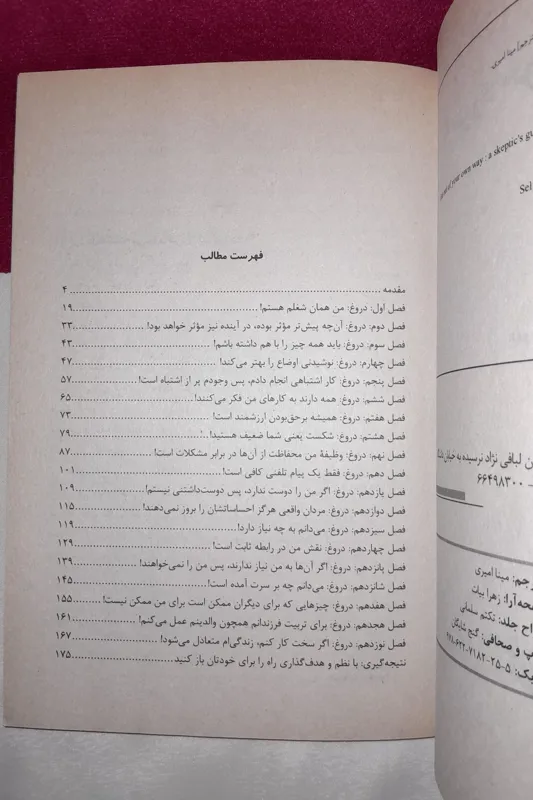 فهرست مطالب
مقدمه ........ ۴
فصل اول: دروغ: من همان شغلم هستم! ........ ۱۹
فصل دوم: دروغ: آن‌چه پیش‌تر مؤثر بوده، در آینده نیز مؤثر خواهد بود! ........ ۳۳
فصل سوم: دروغ: باید همه چیز را با هم داشته باشم! ........ ۴۳
فصل چهارم: دروغ: نوشیدنی اوضاع را بهتر می‌کند! ........ ۴۷
فصل پنجم: دروغ: کار اشتباهی انجام دادم، پس وجودم پر از اشتباه است! ........ ۵۷
فصل ششم: دروغ: همه دارند به کارهای من فکر می‌کنند! ........ ۶۵
فصل هفتم: دروغ: همیشه برحق‌بودن ارزشمند است! ........ ۷۳
فصل هشتم: دروغ: شکست یعنی شما ضعیف هستید! ........ ۷۹
فصل نهم: دروغ: وظیفهٔ من محافظت از آن‌ها در برابر مشکلات است! ........ ۸۷
فصل دهم: دروغ: فقط یک پیام تلفنی کافی است! ........ ۱۰۱
فصل یازدهم: دروغ: اگر من را دوست ندارد، پس دوست‌داشتنی نیستم! ........ ۱۰۹
فصل دوازدهم: دروغ: مردان واقعی هرگز احساساتشان را بروز نمی‌دهند! ........ ۱۱۵
فصل سیزدهم: دروغ: می‌دانم به چه نیاز دارد! ........ ۱۱۹
فصل چهاردهم: دروغ: نقش من در رابطه ثابت است! ........ ۱۲۹
فصل پانزدهم: دروغ: اگر آن‌ها به من نیاز ندارند، پس من را نمی‌خواهند! ........ ۱۳۹
فصل شانزدهم: دروغ: می‌دانم چه بر سرت آمده است! ........ ۱۴۵
فصل هفدهم: دروغ: چیزهایی که برای دیگران ممکن است برای من ممکن نیست! ........ ۱۵۵
فصل هجدهم: دروغ: برای تربیت فرزندانم همچون والدینم عمل می‌کنم! ........ ۱۶۱
فصل نوزدهم: دروغ: اگر سخت کار کنم، زندگی‌ام متعادل می‌شود! ........ ۱۶۷
نتیجه‌گیری: با نظم و هدف‌گذاری راه را برای خودتان باز کنید ........ ۱۷۵
مینا امیری
of your own way : a skeptic's gu
Sel
لبافی نژاد نرسیده به خیابان
۶۶۴۹۸۳۰۰ -
جم: مینا امیری
حه‌آرا: زهرا بیات
اح جلد: تکتم سلمانی
پ و صحافی: گنج شایگان
بک: ۵-۲۵-۷۱۸۲-۶۲۲-۹۷۸